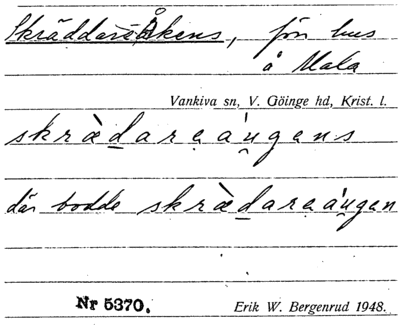 Skräddareåkens, fön hus
å Mala
Vankiva sn, V. Göinge hd, Krist. l.
skràdareáꭒgens
där bodde skràdareáꭒgen
Nr 5370. Erik W. Bergenrud 1948.